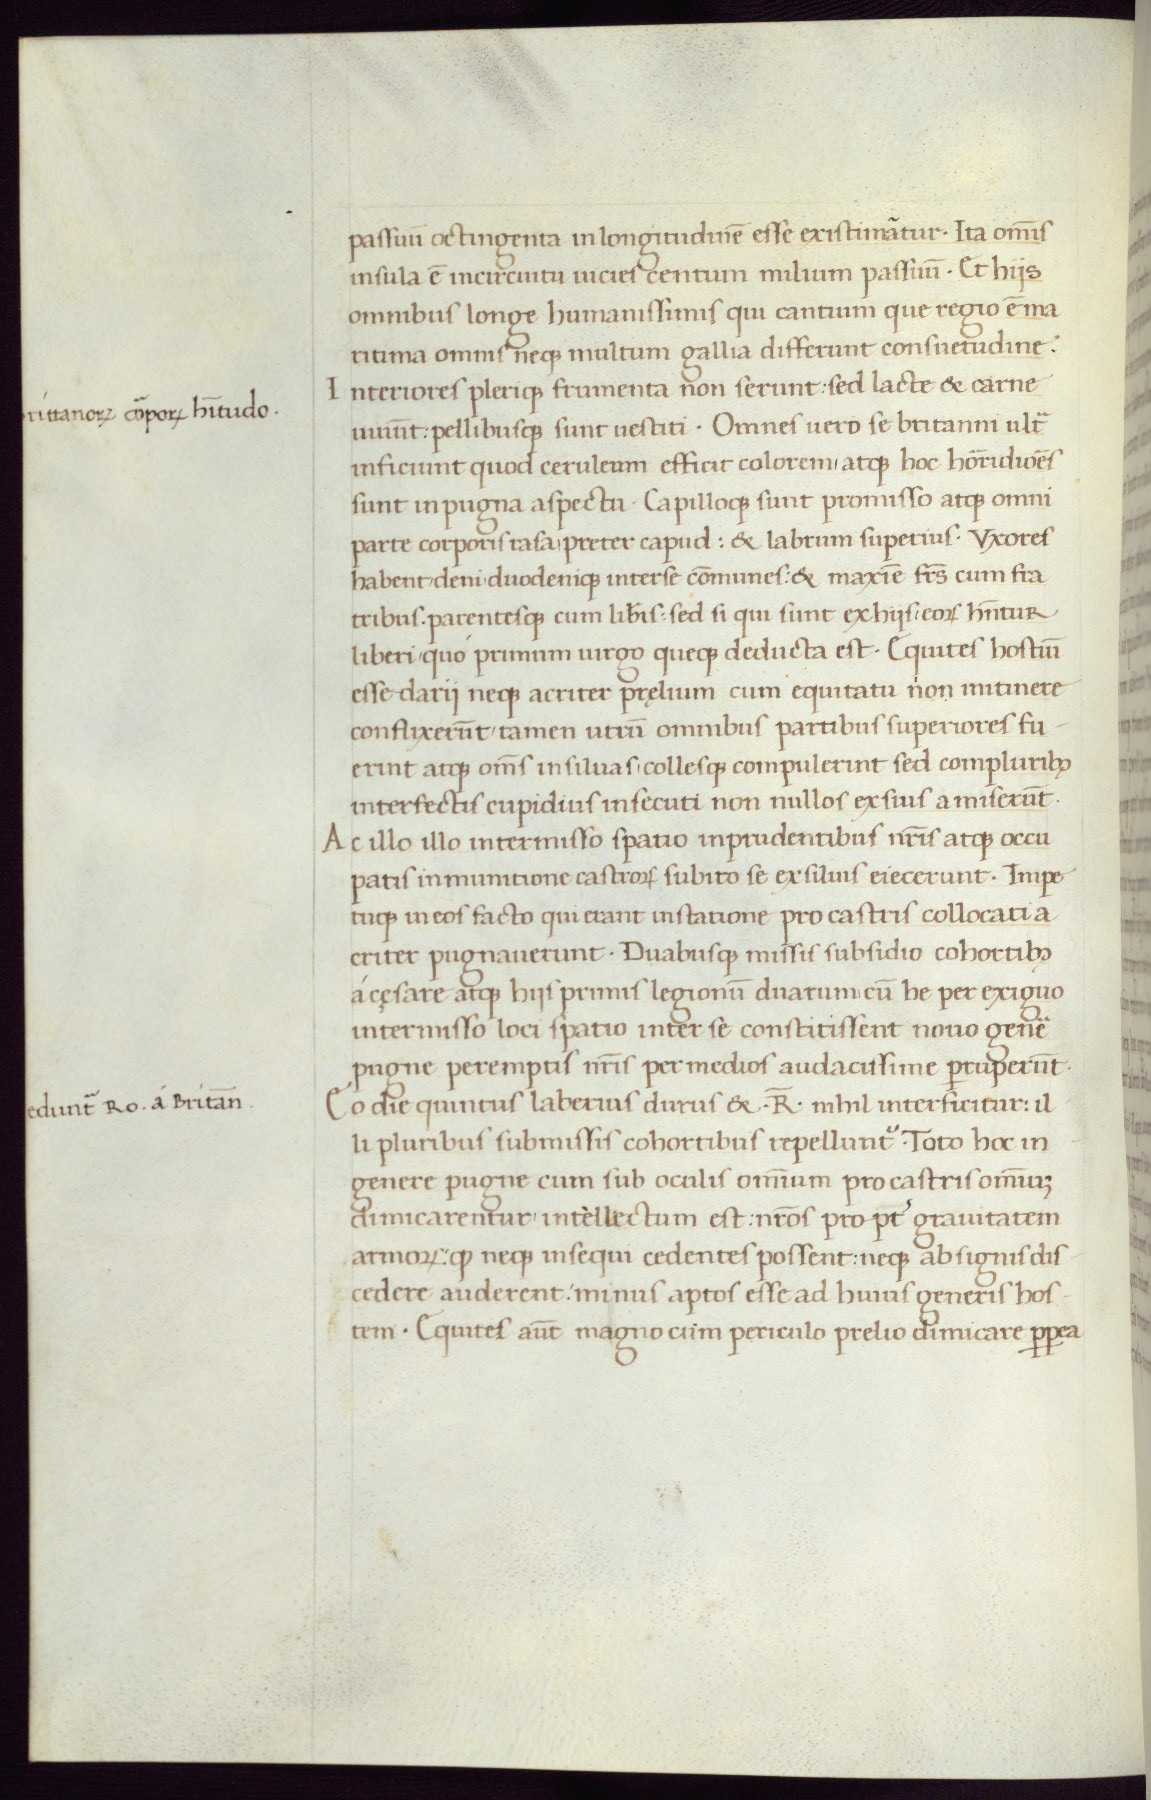 passuū octingenta in longitudinē esse existimāt̃ur. Ita om̄is
insula ē incircuitu uicies centum milium passuū. Et hijs
omnibus longe humanissimis qui cantium que regio ē ma
ritima omnis neqꝫ multum gallia differunt consuetudine:
Interiores pleriqꝫ frumenta non serunt: sed lacte & carne
brittanorꝝ cōporꝝ hītudo.
uiuūt: pellibusqꝫ sunt uestiti. Omnes uero se britanni ultᷓ
inficiunt quod ceruleum efficit colorem, atqꝫ hoc horridioēs
sunt in pugna aspectu. Capilloqꝫ sunt promisso atqꝫ omni
parte corporis rasa, preter capud: & labrum superius. Vxores
habent, deni, duodeniqꝫ inter se cōmunes: & maxīe fr̄s cum fra
tribus. parentesqꝫ cum lib̄is: sed si qui sunt ex hijs, eorꝝ hn̄tur
liberi, quó primum uirgo queqꝫ deducta est. Equites hostiū
esse darij neqꝫ acriter pręlium cum equitatu non mitinere
conflixerūt, tamen utrū omnibus partibus superiores fu-
erint atqꝫ om̄s in siluas, collesqꝫ compulerint sed compluribꝫ
interfectis cupidius insecuti non nullos ex suis amiserūt.
Ac illo illo intermisso spatio inprudentibus nr̄is atqꝫ occu
patis in munitione castrorꝝ subito se ex siluis eiecerunt. Impe
tuqꝫ in eos facto qui erant in statione pro castris collocati a
criter pugnauerunt. Duabusqꝫ missis subsidio cohortibꝫ
á cęsare atqꝫ hijs primis legionū duarum, cū he per exiguo
intermisso loci spatio inter se constitissent nouo gen̄e
pugne peremptis nr̄is per medios audacissime ꝑruperūt.
cedunt᷑ Ro. á Britān.
Eo die quintus laberius durus &. R̄. nihil interficitur: il
li pluribus submissis cohortibus repellunt᷑. Toto hoc in
genere pugne cum sub oculis om̄ium pro castris om̄iuꝫ
dimicarentur, intèllectum est: nr̄os pro pt᷑ grauitatem
armorꝝ: ꝙ neqꝫ insequi cedentes possent: neqꝫ ab signis dis-
cedere auderent: minus aptos esse ad huius generis hos-
tem. Equites aūt magno cum periculo prelio dimicare ꝓpea